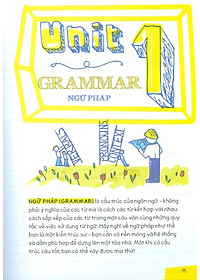 Unit 1
GRAMMAR
NGỮ PHÁP
NGỮ PHÁP (GRAMMAR) là cấu trúc của ngôn ngữ - không
phải ý nghĩa của các từ mà là cách các từ kết hợp với nhau
cách sắp xếp của các từ trong một câu văn cùng những quy
tắc về việc sử dụng từ ngữ. Hãy nghĩ về ngữ pháp như thể
bạn là một kiến trúc sư - bạn cần có nền móng và hệ thống
xà dầm phù hợp để dựng lên một tòa nhà. Một khi có cấu
trúc câu tốt, bạn có thể xây được mọi thứ!
11